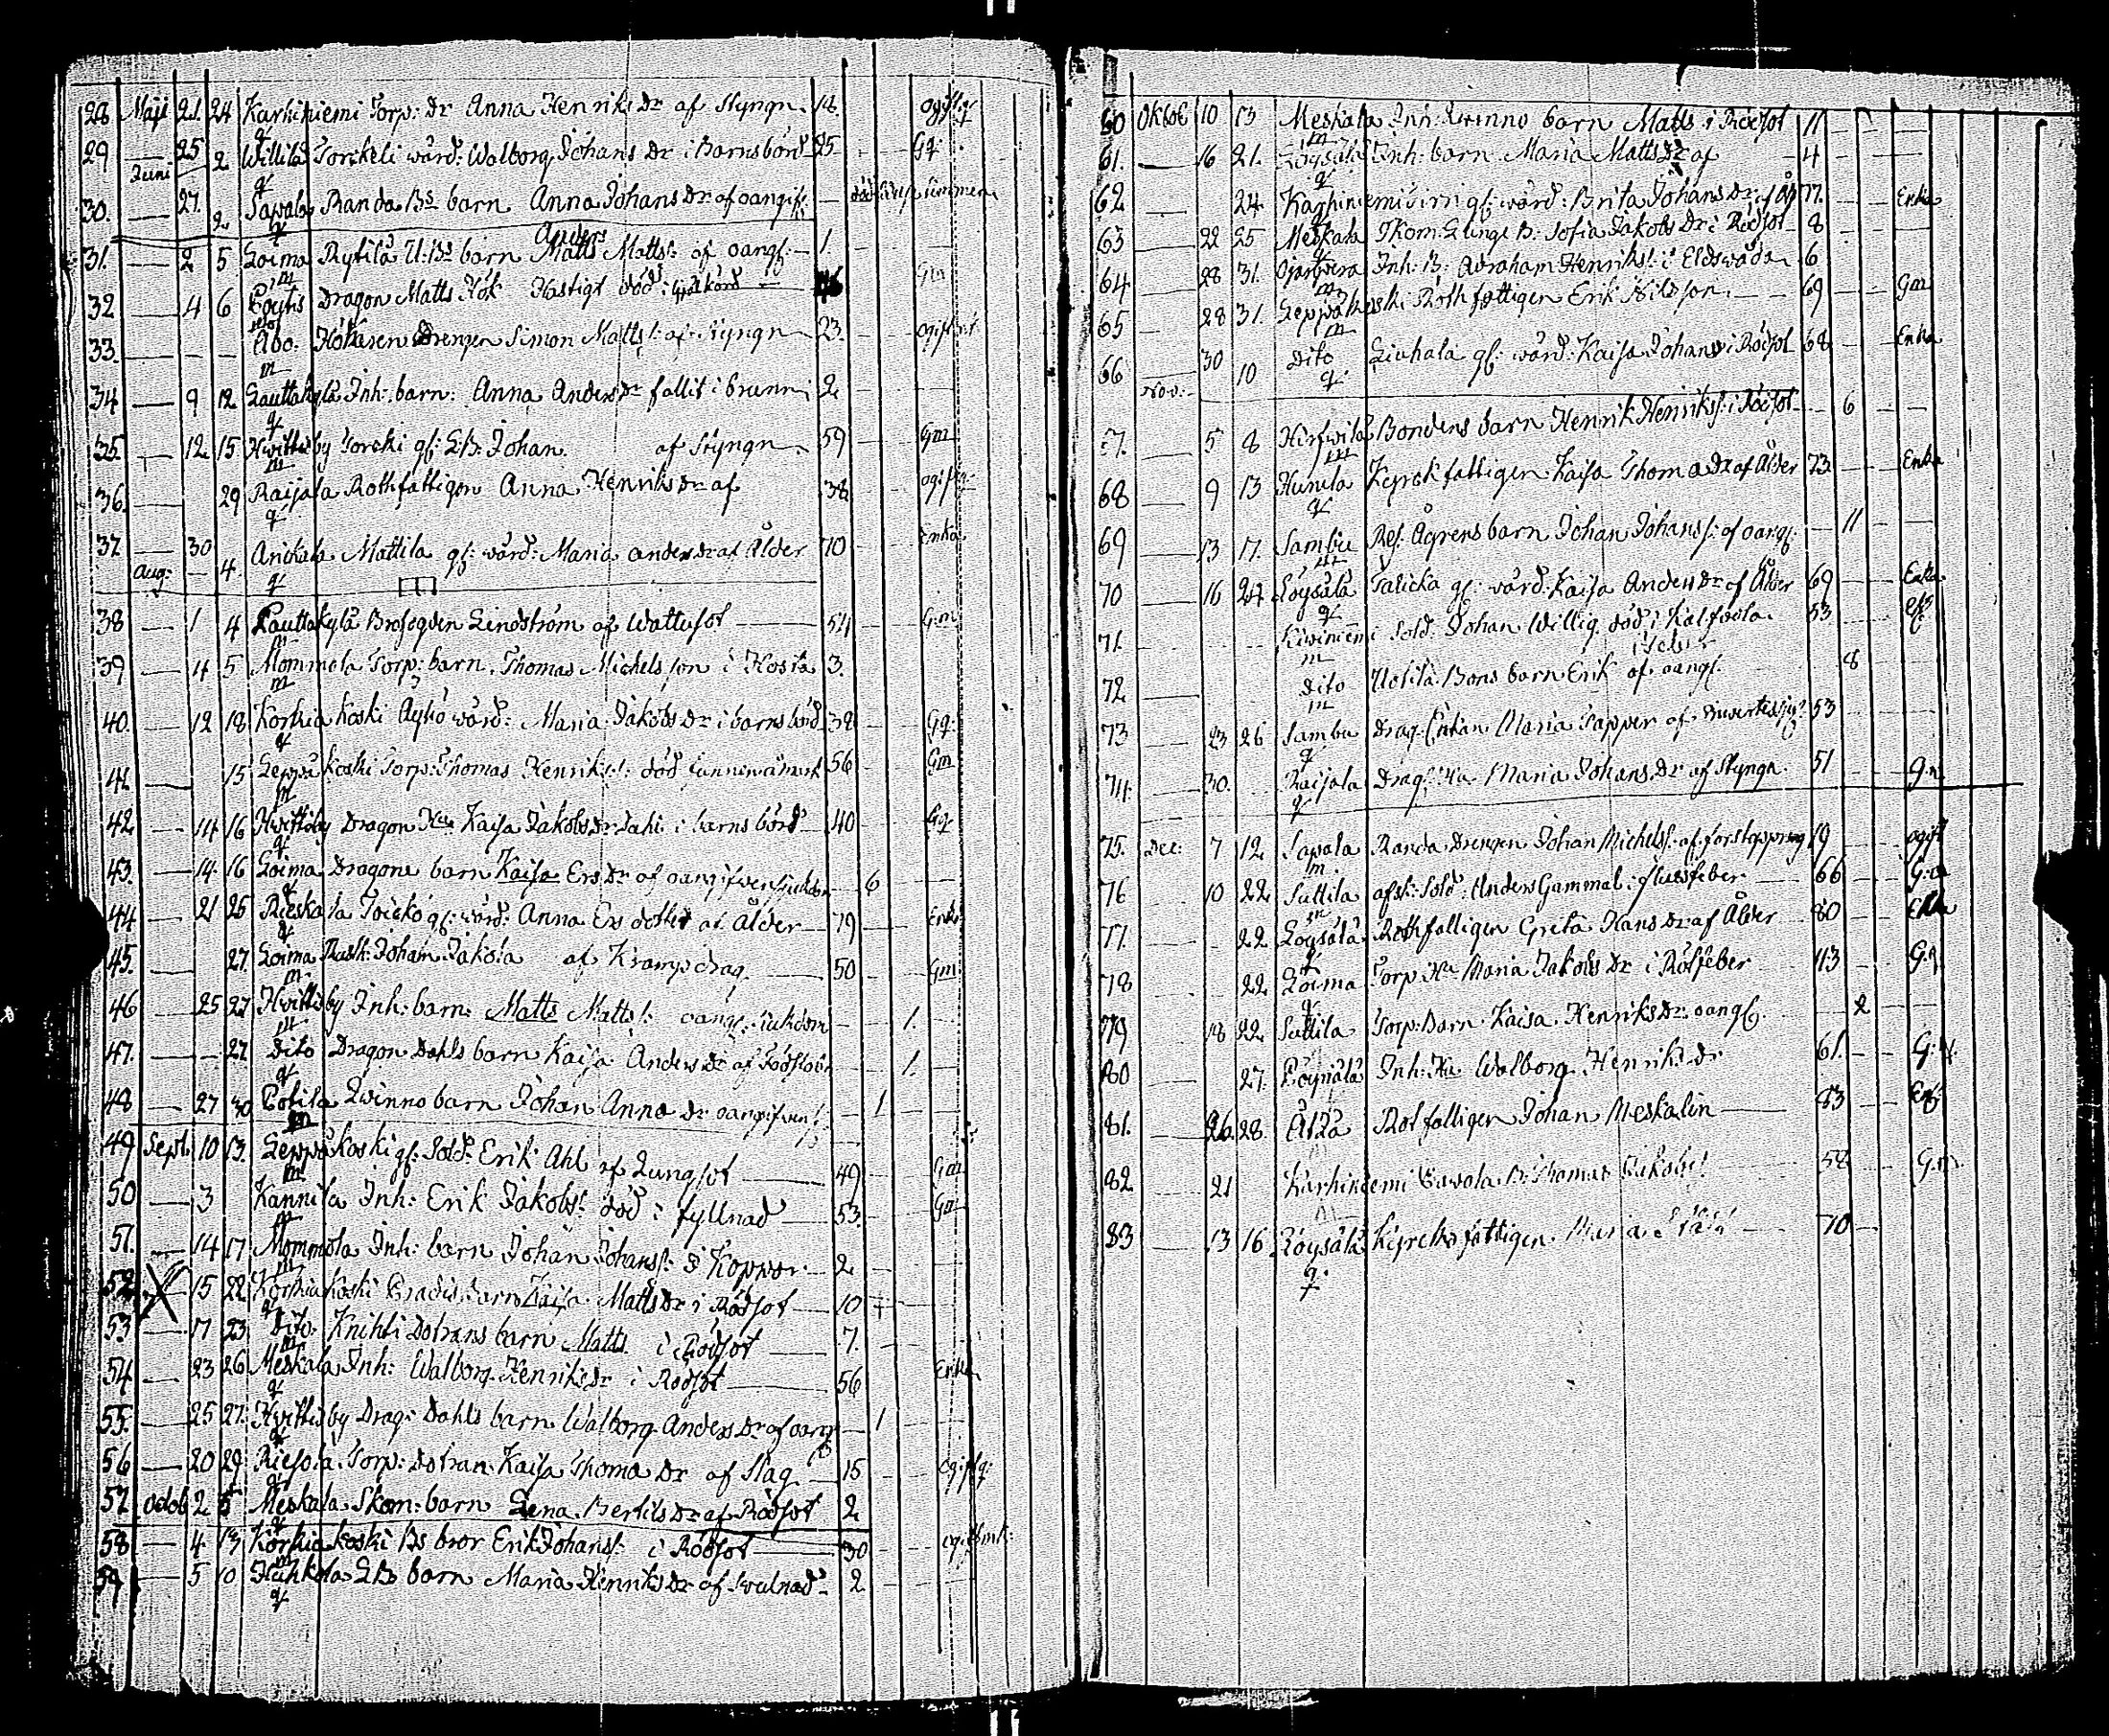 28 Maji 21 24 Karhiniemi Torp: Dr Anna Henriks Dr af Styngn. 18. ogift q
29 — 25 2 Willilä Torikeli wärd: Walborg Johans Dr i Barnsbörd 25 Gq:
Juni q
30. — 27. 2 Sawala Randa Bs barn Anna Johans Dr af oangif: —
q
31. — 2 5 Loima Rytilä U: Bs barn Anders Matts Matts s: af oangf: — 1.
m
32 — 4 6 Dragon Matts Hök Hastigt död: Gm
33. — Åbo. drengen Simon Matts s: af Styngn — 23.
m
34 — 9 12 Lauttakylä Inh: barn: Anna Anders Dr fallit i brunn 2
q
35. — 12 15 Hwittisby Torcki gf: LB: Johan af Styngn. 59 Gm
m
36. — 29 Raijala Rothfattigen Anna Henriks Dr af 38 ogift q:
q
37 — 30 4. Mattila gf: wärd: Maria anders dr af Ålder 70 Enka
Aug: q
38 — 1 4 Lauttakylä Lindström af Wattusot — 54 Gm
m
39 — 4 5 Mommola Torp: barn. Thomas Michelsson i Hosta 3.
m
40. — 12 18 Korkiakoski Äykö wärd: Maria Jakobs Dr i barnsbörd 32 Gq:
q
41 — 15 Leppäkoski Torp: Thomas Henriks s: död 56 Gm
m
42 — 14 16 Hwittisby Dragon Hu Kaisa Jakobs Dr i barnsbörd 40 Gq
q
43. — 14. 16 Loima Dragons barn Kaisa Ers Dr af oangifven sjukdom — 6
q
44 — 21 25 Rieskala gf: wärd: Anna Ers dotter af Ålder — 79 Enka
q
45. — 27. Loima Johan Jakola af Krampdrag. — 50 — Gm
m
46 — 25 27 Hwittisby Inh: barn: Matts Matts s: oangf: sjukdom — 1.
m
47. — 27. Dito Dragon Dahls barn Kaisa Anders Dr af — 1.
q
48 — 27 30 Potila Qwinno barn Johan Anna dr oangifven — 1
m
49 Sept. 10 13. Leppäkoski gf: Sold: Erik Ahl af Lungsot — 49 Gm
m
50 — 3 Kannila Inh: Erik Jakobs s: död i fyllnad — 53. Gm
m
51. — 14 17 Mommola Inh: barn Johan Johans s: i Koppor. — 2
m
52 X 15 22 Korkiakoski barn Kaisa Matts Dr i Rödsot — 10
q
53 — 17 23 Dito. Knihti Dotrans barn Matts i Rödsot — 7.
m
54 — 23 26 Meskala Inh: Walborg Henriks Dr i Rödsot — 56 Enka
q
55. — 25 27. Hwittisby Drag: Dahls barn Walborg Anders Dr af oangf — 1
q
56 — 20 29. Torp: Dotran Kaisa Thoma Dr af Slag — 15 ogift q:
q
57 Octob 2 5 Meskala Skom: barn Lena Bertils Dr af Rödsot 2
q
58 — 4 13 Korkiakoski Bs bror Erik Johans s: i Rödsot — 30
m
59 — 5 10 Huhkola LB barn Maria Henriks Dr af swulnad — 2
q
60 Oktob 10 13 Meskala Inh: Qwinno barn Matts i Rödsot 11
m
61. — 16 21. Löysälä Inh: barn Maria Matts Dr af — 4
q
62 — 24 Karhiniemi gf: wärd: Brita Johans Dr 77. Enka
q
63 — 22 25 Meskala Skom: B: Sofia Jakobs Dr i Rödsot 8
q
64 — 28 31. Inh: B: Abraham Henriks s: i Eldswåda 6
m
65 — 28 31. Leppäkoski Rothfattigen Erik Nilsson. — 69 Gm
m
66 — 30 10 Dito Liuhala gf: wärd: Kaisa Johans i Rödsot 68 Enka
Nov: q
67. 5 8 Hirfwilä Bondens barn Henrik Henriks s: i Rödsot — 6
m
68 — 9 13 Hunila Kyrckfattigen Kaisa Thoma Dr af Ålder 73. Enka
q
69 — 13 17. Sambu Ref. Ågrens barn Johan Johans s: af oangf: — 11
m
70 — 16 24 Löysälä gf: wärd: Kaisa Anders Dr af Ålder 69 Enka
q
71. Kiwiniemi Sold: Johan Willig död i Kalfvola 53
m
72 — Dito Uotila Bons barn Erik af oangf. 8
m
73 — 23 26 Sambu Drag: Enkan Maria Tapper af 53
q
74. — 30. Raijala Drag: Hu Maria Johans Dr af Styngn. 51 Gq
q
75. Dec: 7 12. Sawala Randa Drengen Johan Michels s: af 19 ogift
m
76 — 10 22 Suttila afsk: Sold: Anders Gammal i flussfeber. — 66 G:m
m
77. — 22 Löysälä Rothfattigen Greta Hans Dr af Ålder — 80 Enka
q
78 — 22 Loima Torp Hu Maria Jakobs Dr i Rötfeber 43 G:q
q
79 — 18 22. Suttila Torp: Barn Kaisa Henriks Dr oangf. 2
80 — 27. Löysälä Inh: Hu Walborg Henriks Dr 61. G:q.
81. — 26. 28 Rotfattigen Johan Meskalin — 83
82 — 21 Karhiniemi Thomas Jakobs s: — 58 G:m
83 — 13 16 Löysälä Kyrcksfattigen Maria — 70 —
q.